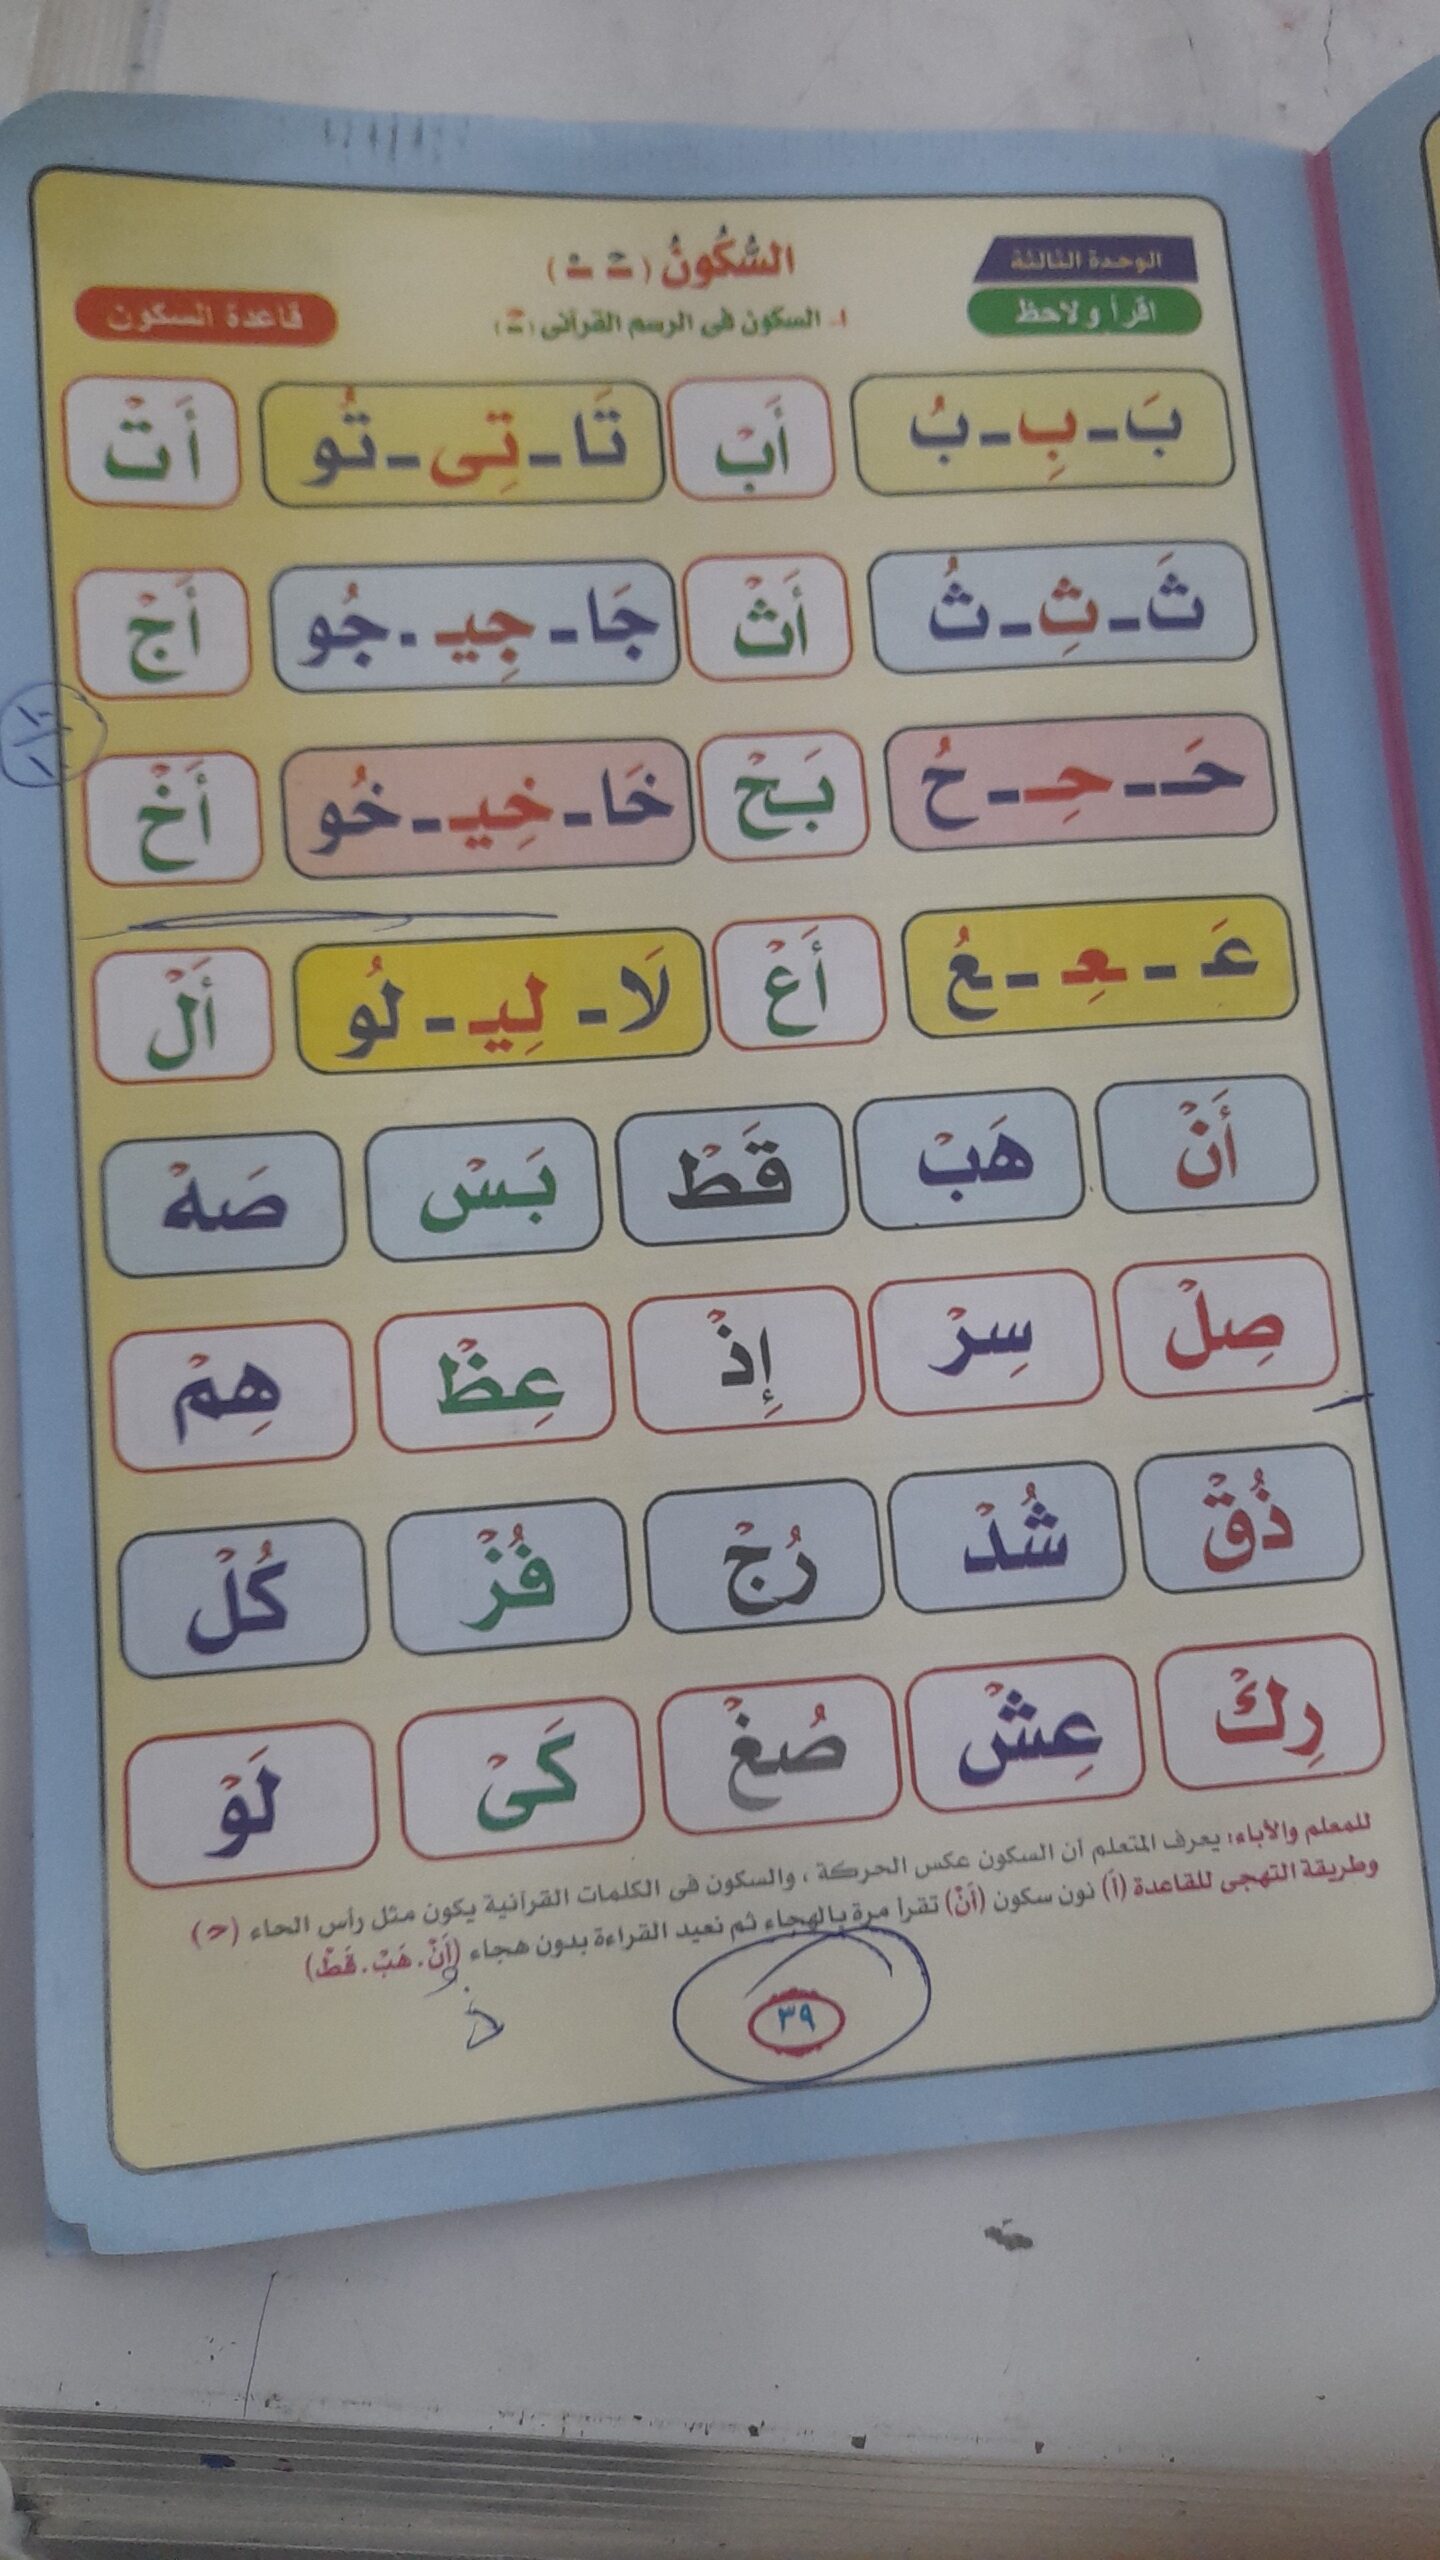 الوحدة الثالثة
السُّكُونُ (ـۡ ـْ)
اقرأ ولاحظ
١- السكون فى الرسم القرآنى (ـۡ)
قاعدة السكون
بَ - بِ - بُ أَبۡ تَا - تِى - تُو أَتۡ
ثَ - ثِ - ثُ أَثۡ جَا - جِيـ - جُو أَجۡ
حَـ - حِـ - حُ بَحۡ خَا - خِيـ - خُو أَخۡ
عَـ - عِـ - عُ أَعۡ لَا - لِيـ - لُو أَلۡ
أَنۡ هَبۡ قَطۡ بَسۡ صَهۡ
صِلۡ سِرۡ إِذۡ عِظۡ هِمۡ
ذُقۡ شُدۡ رُجۡ فُزۡ كُلۡ
رِكۡ عِشۡ صُغۡ كَىۡ لَوۡ
للمعلم والأباء: يعرف المتعلم أن السكون عكس الحركة ، والسكون فى الكلمات القرآنية يكون مثل رأس الحاء (حـ)
وطريقة التهجى للقاعدة (أَ) نون سكون (أَنۡ) تقرأ مرة بالهجاء ثم نعيد القراءة بدون هجاء (أَنۡ . هَبۡ . قَطۡ)
٣٩